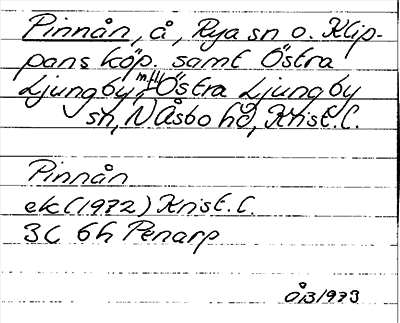 Pinnån, å, Rya sn o. Klip-
pans köp. samt Östra
Ljungby m.fl. Östra Ljungby
sn, N Åsbo hd, Krist.l.
Pinnån
ek (1972) Krist.l.
3C 6h Penarp
ÅB 1973